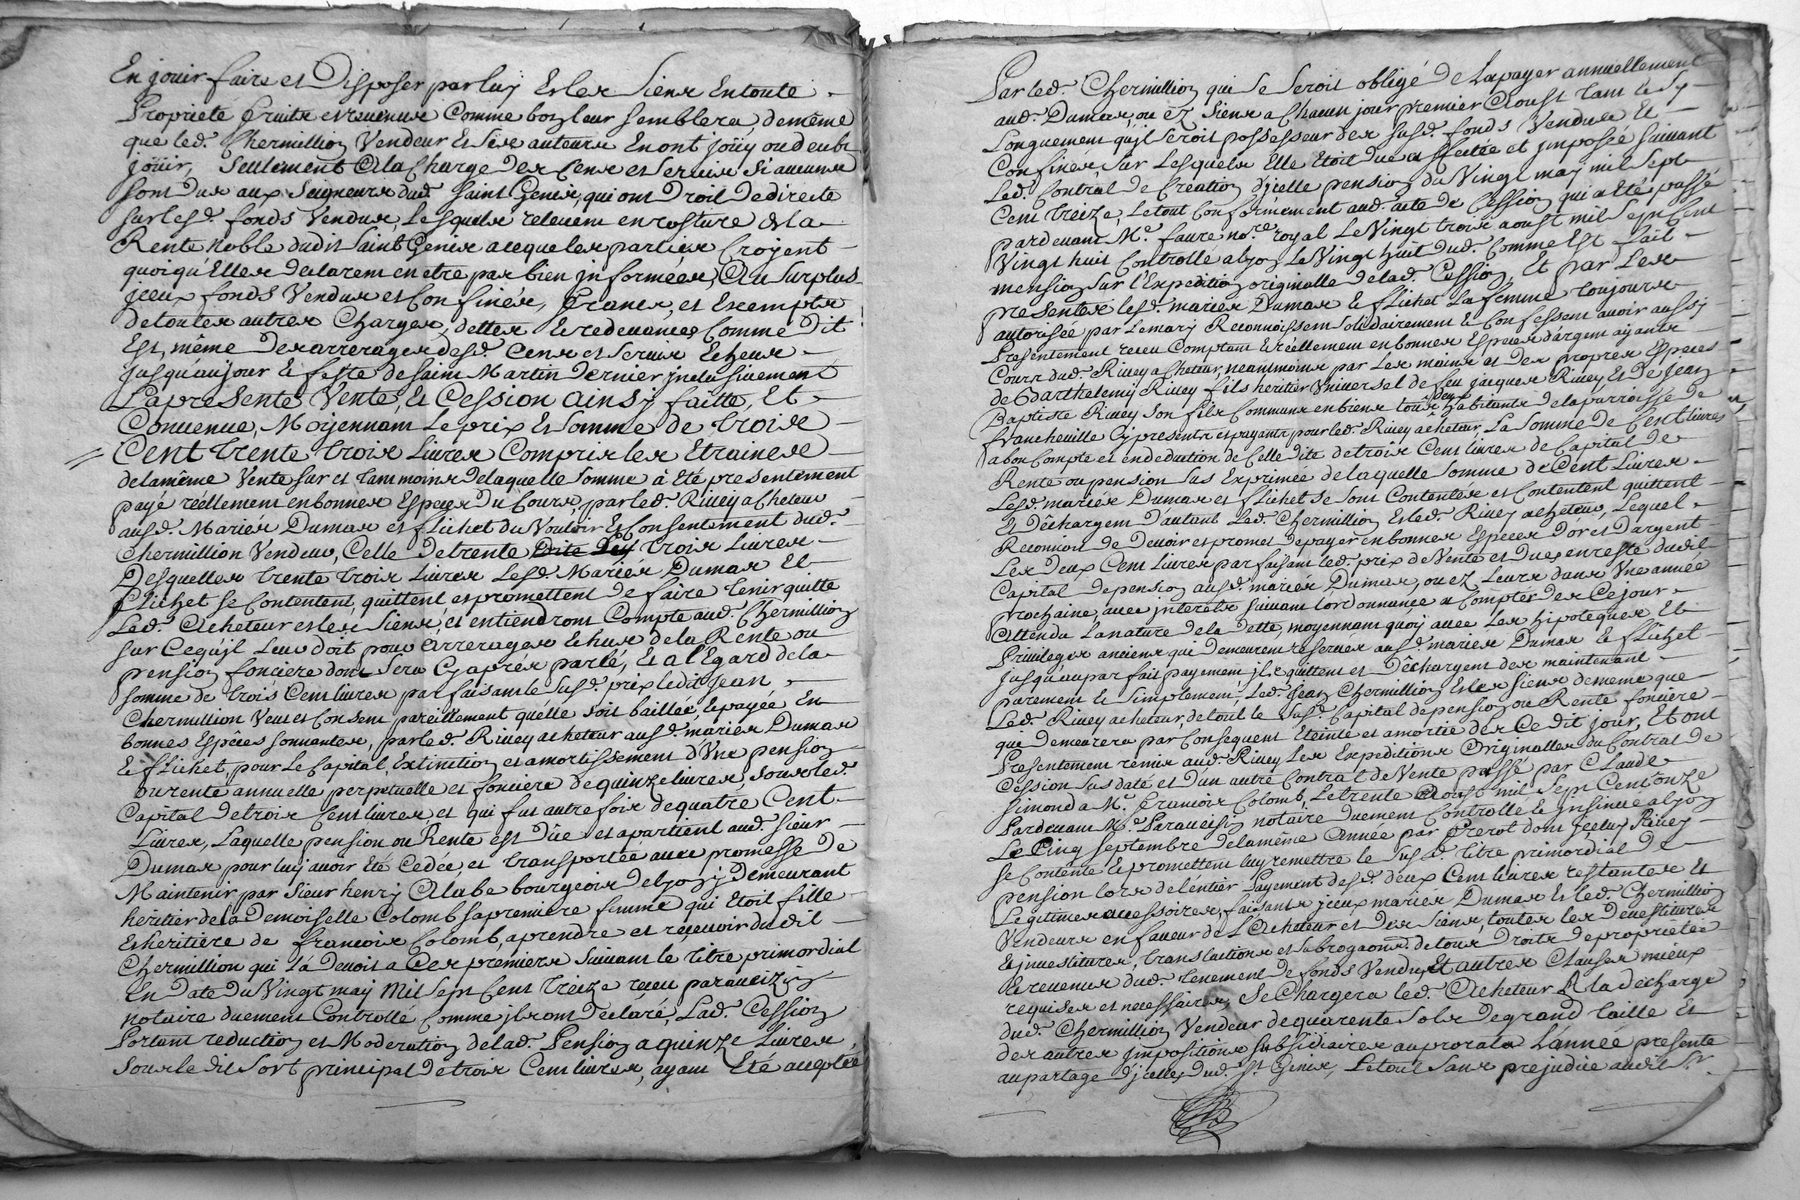 En jouir faire et Disposer par luy Et les siens En toute
Proprieté fruits et revenus Comme bon leur semblera, de même
que led. Chermillion Vendeur Et ses auteurs En ont joüy ou deub
joüir, Seulement à la charge des Cens et servis Si aucuns
sont dus aux Seigneurs dud. Saint Genis, qui ont Droit de directe
sur lesd. fonds Vendus, Lesquels relevent en roture de la
Rente noble dudit Saint Genis a ce que les parties Croyent
quoiqu'Elles declarent en etre pas bien jnformées, Au Surplus
jceux fonds Vendus et Confinés, francs, et Exempts
de toutes autres Charges, dettes Et redevances Comme dit
Est, même des arrerages desd. Cens et servis Echeus
jusqu'au jour Et feste de saint Martin dernier jnclusivement
La presente Vente, Et Cession ainsy faitte, Et
Convenue, Moyennant Le prix Et somme de trois
Cent trente trois Livres Compris les Etraines
de la même Vente sur et tant moins de laquelle somme à été presentement
payé réellement en bonnes Especes du Cours, par led. Rivey acheteur
ausd. Mariés Dumas et flichet du Vouloir Et Consentement dud.
Chermillion Vendeur, Celle de trente trois Livres
Desquelles trente trois Livres Lesd. Mariés Dumas Et
flichet se Contentent, quittent et promettent de faire tenir quitte
Led. Acheteur et les siens, et en tiendront Compte aud. Chermillion
sur Ce qu'jl Leur doit pour Arrerages Echus de la Rente ou
pension fonciere dont sera Cy après parlé, Et a l'Egard de la
somme de trois Cent livres parfaisant le susd. prix ledit Jean
Chermillion Veut et Consent pareillement quelle soit baillée, Et payée En
bonnes Espêces sonnantes, par led. Rivey acheteur ausd. mariés Dumas
Et flichet, pour Le Capital, Extinction et amortissement d'Une pension
ou rente annuelle, perpetuelle et fonciere de quinze livres, sous led.
Capital de trois Cent livres et qui fut autre fois de quatre Cent
Livres, Laquelle pension ou Rente est düe et apartient aud. sieur
Dumas pour luy avoir été Cedée, et transportée avec promesse de
Maintenir, par sieur henry Alabe bourgeois de Lyon y demeurant
heritier de la Demoiselle Colomb sa premiere femme qui Etoit fille
Et heritiere de francois Colomb, a prendre et recevoir dudit
Chermillion qui La devoit a Ces premiers suivant le titre primordial
En Date du Vingt may Mil sept Cent treize receu par
notaire duement Controllé Comme jls ont déclaré, Lad. Cession
Portant reduction et Moderation de lad. Pension a quinze Livres,
sous le dit sort principal de trois Cent livres, ayant Eté acceptée
Par led. Chermillion qui se seroit obligé de La payer annuellement
aud. Dumas, ou ez siens a Chacun jour premier Aoust tant Et Sy
Longuement qu'jl seroit possesseur des susd. fonds Vendus Et
Confinés, sur Lesquels Elle Etoit due affectée et jmposée suivant
Led. Contrat de Creation d'jcelle pension du Vingt may mil sept
Cent treize, Le tout Conformement aud. acte de Cession qui a Eté passé
Pardevant Me. faure nore. royal Le Vingt trois aoust mil sept Cent
Vingt huit Controllé a Lyon Le Vingt huit dud. Comme Est fait
mension sur l'Expedition originalle de lad. Cession, Et par Les
presentes lesd. mariés Dumas Et flichet La femme toujours
autorisée par Le mary Reconnoissent solidairement Et Confessent avoir aussy
Presentement receu Comptant Et réellement en bonnes Especes d'argent ayants
Cours dud. Rivey acheteur, neanmoins par Les mains et des propres Especes
de Barthelemy Rivey fils heritier Universel de feu Jacques Rivey Et de Jean
Baptiste Rivey son fils Communs en biens tous deux habitants de la parroisse de
francheville Cy presents et payants pour led. Rivey acheteur La somme de Cent livres
a bon Compte et en deduction de Celle dite de trois Cent livres de Capital de
Rente ou pension sus Exprimée de laquelle somme de Cent Livres
Lesd. mariés Dumas et flichet se sont Contentés et Contentent quittent
Et Déchargent d'autant Led. Chermillion Et led. Rivey acheteur, Lequel
Reconnoit de Devoir et promet de payer en bonnes Especes d'or et d'argent
Les deux Cent Livres parfaisant led. prix de Vente et dues en reste dudit
Capital de pension ausd. mariés Dumas, ou ez Leurs dans Une année
prochaine, avec jnterets suivant l'ordonnance a Compter de Ce jour
Attendu La nature de la dette, moyennant quoy avec Les hipoteques Et
Privileges anciens qui demeurent reservés ausd. mariés Dumas Et flichet
jusqu'au parfait payement jls quittent et Déchargent des maintenant
purement Et simplement, Led. Jean Chermillion Et les siens de même que
Led. Rivey acheteur, de tout le susd. Capital de pension ou Rente fonciere
qui demeurera par Consequent Eteinte et amortie dès Ce dit jour, Et ont
Presentement remis aud. Rivey Les Expeditions Originalles du Contrat de
Cession sus daté et d'un autre Contrat de Vente passé par Claude
Simond a Me. francois Colomb, Le trente Aoust mil sept Cent onze
Pardevant Me. notaire duement Controllé Et jnsinué a Lyon
Le Cinq septembre de la même Année par Perot dont jceluy Rivey
se Contente Et promettent luy remettre le susd. titre primordial de
pension lors de l'entier Payement desd. deux Cent livres restantes Et
Legitimes accessoires, faisants jceux mariés Dumas Et led. Chermillion
Vendeurs en faveur de L'Acheteur et Des siens, toutes les devestitures
Et jnvestitures, translations et subrogaons. de tous Droits de proprieté
Et revenus dud. tenement de fonds Vendus Et autres Clauses mieux
requises et necessaires, Se Chargera led. Acheteur A la décharge
dud. Chermillion Vendeur de quarente sols de grand taille Et
des autres jmpositions subsidiaires au prorata L'année presente
au partage d'jcelles dud. St. Genis, Le tout sans prejudice audit Sr.